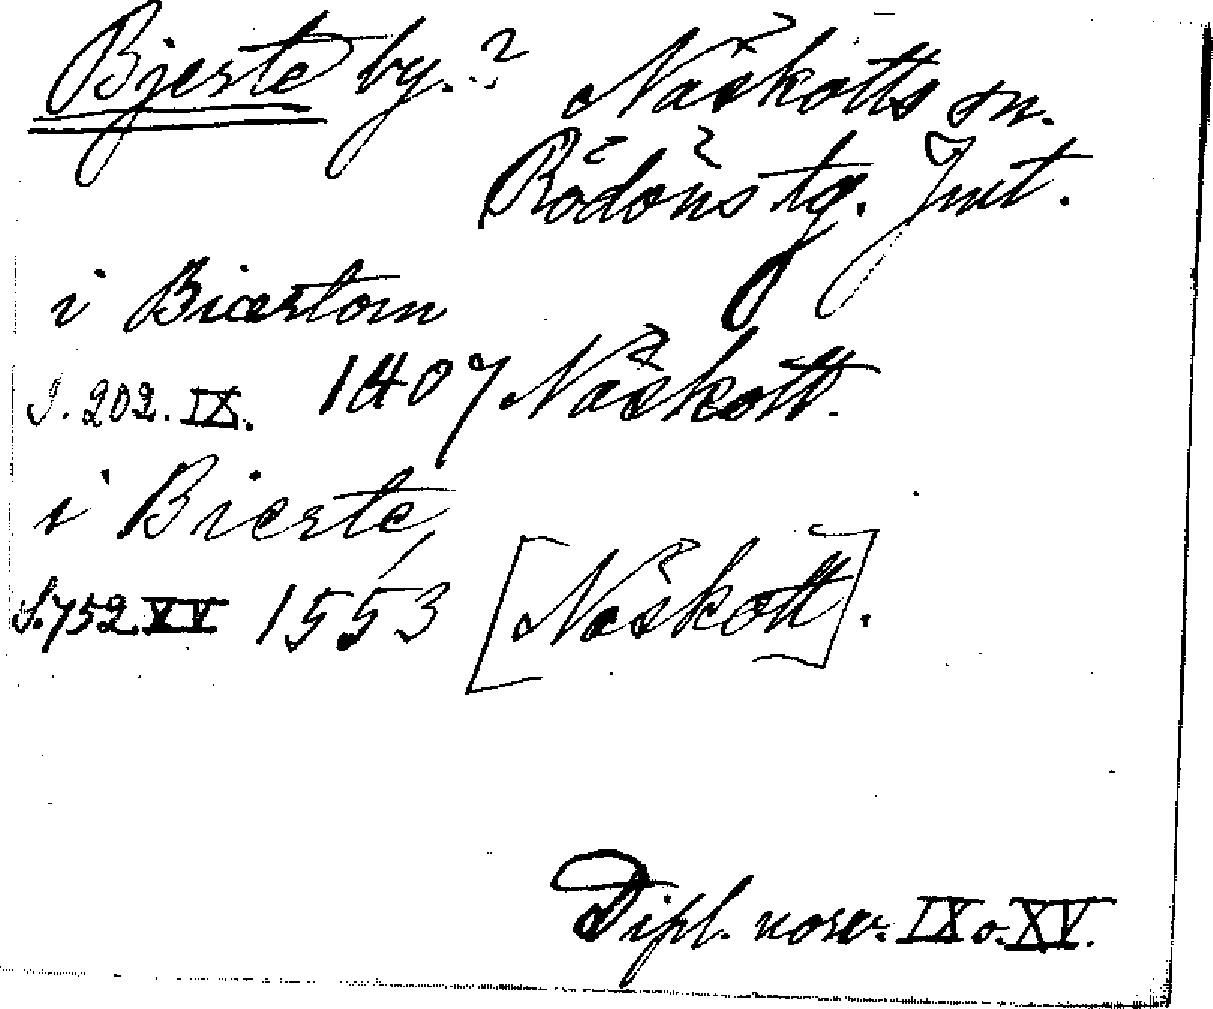 Bjerte by.? Näskotts sn.
Rödöns tg. Jmt.
i Biærtom
S. 202. IX. 1407 Näskott.
i Bierte,
S. 752 XV 1553 [Näskott].
Dipl. norv. IX o. XV.